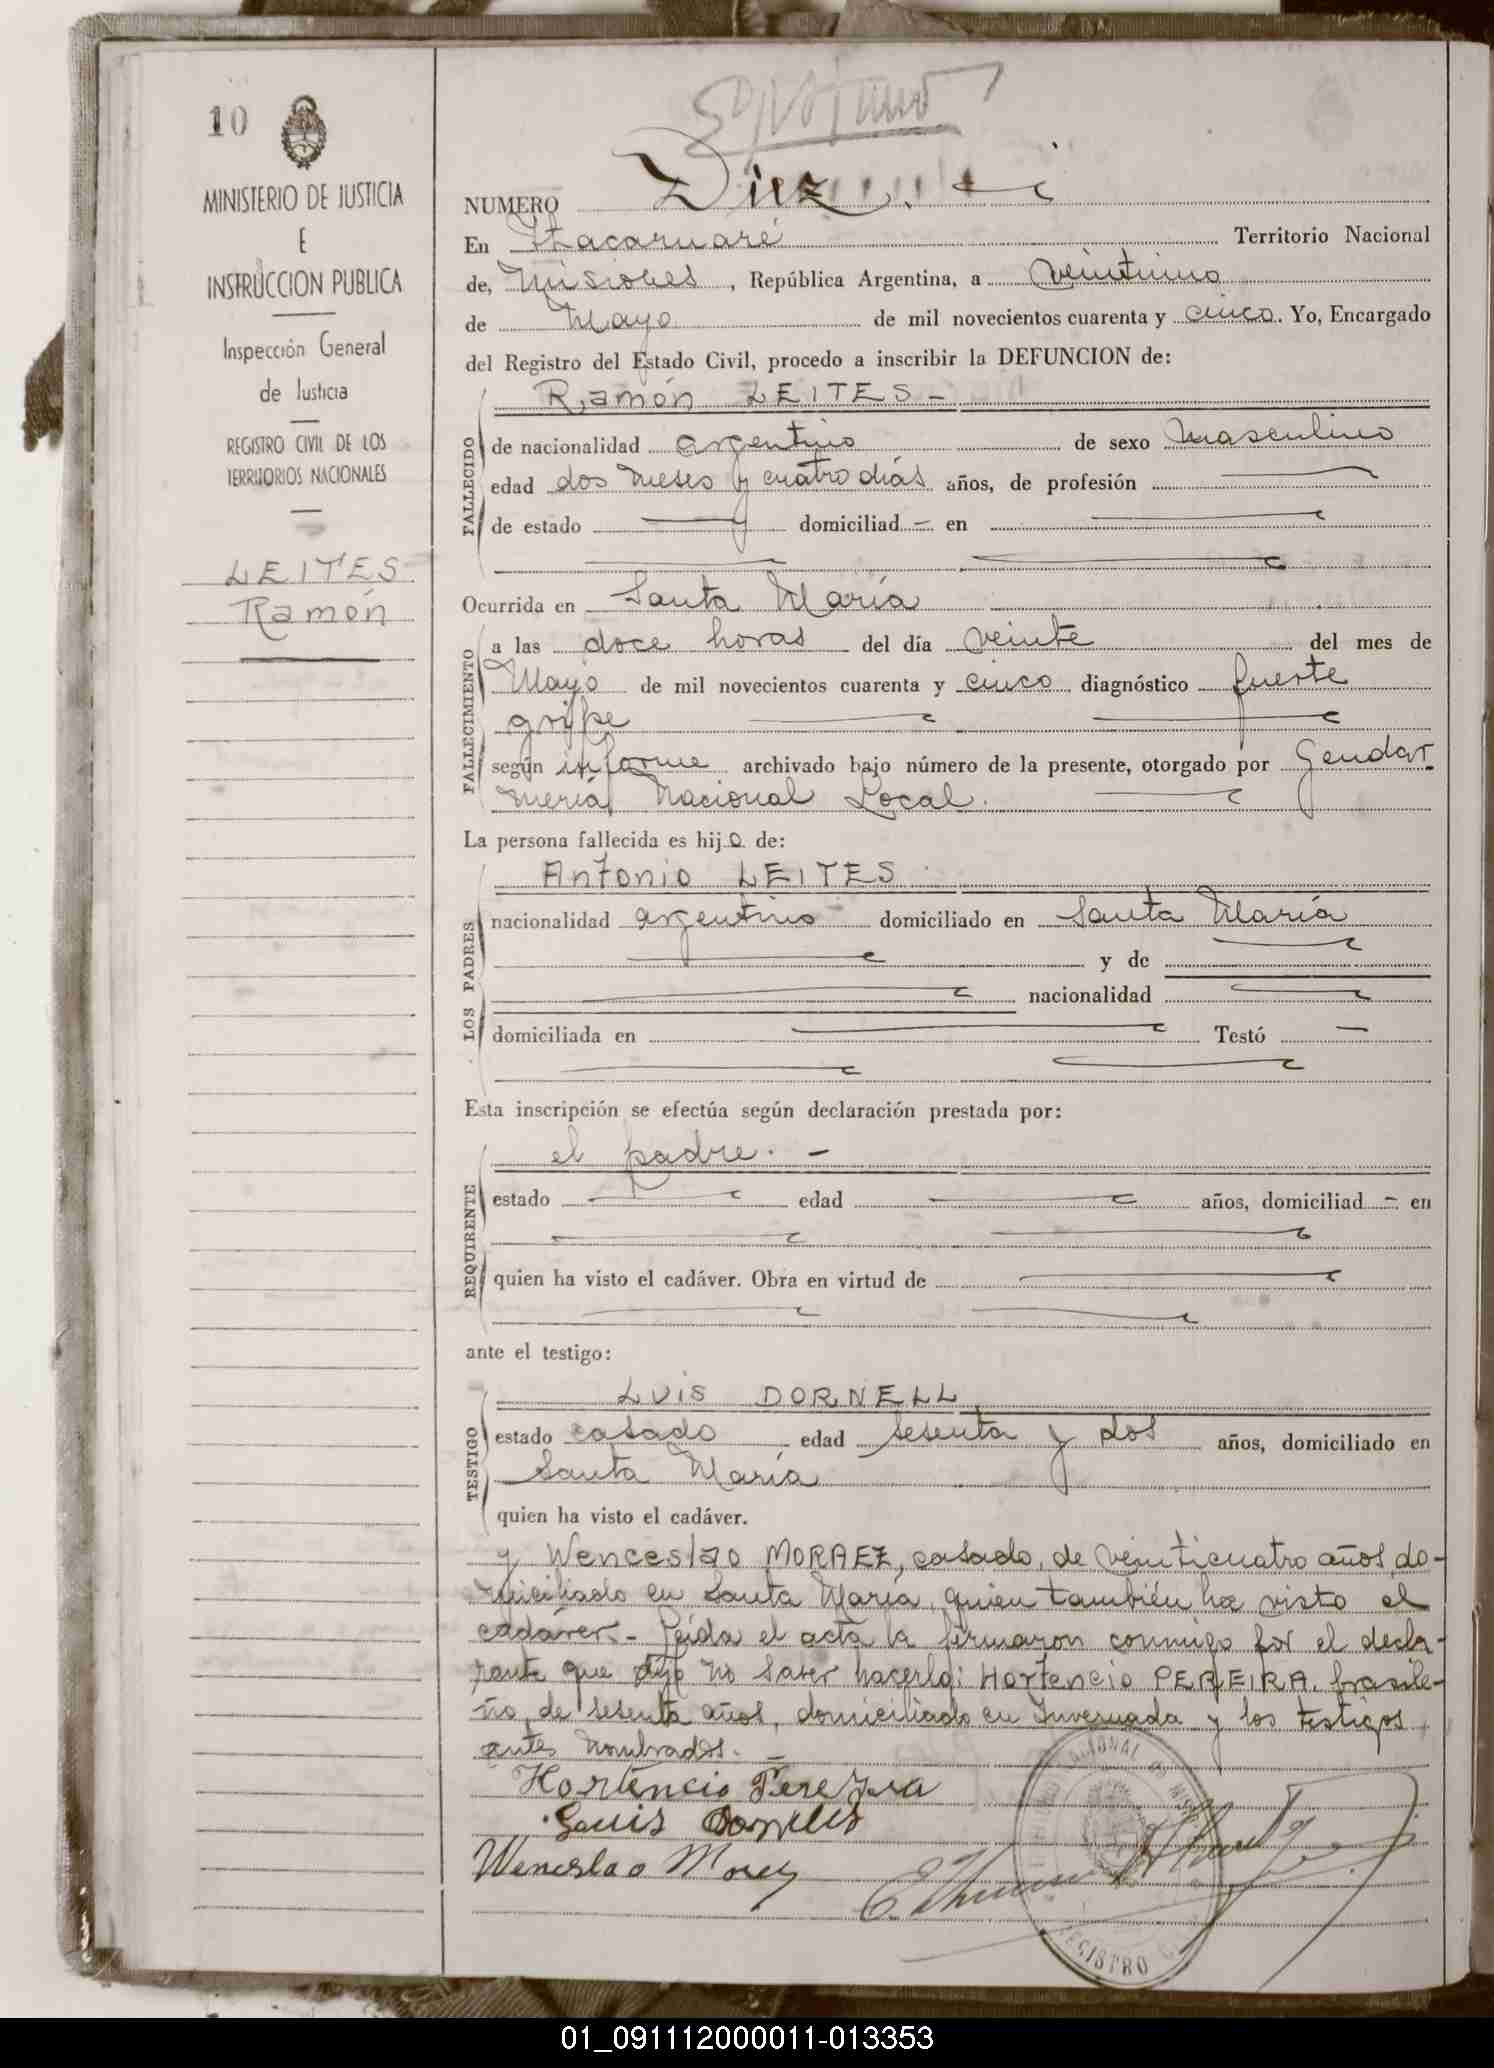 10
MINISTERIO DE JUSTICIA
E
INSTRUCCION PUBLICA
Inspección General
de Justicia
REGISTRO CIVIL DE LOS
TERRITORIOS NACIONALES
LEITES
Ramón
NUMERO Diez.
En Itacaruaré Territorio Nacional
de, Misiones, República Argentina, a veintiuno
de Mayo de mil novecientos cuarenta y cinco. Yo, Encargado
del Registro del Estado Civil, procedo a inscribir la DEFUNCION de:
FALLECIDO
Ramón LEITES -
de nacionalidad argentino de sexo masculino
edad dos meses y cuatro días años, de profesión
de estado domiciliad - en
Ocurrida en Santa María
FALLECIMIENTO
a las doce horas del día veinte del mes de
Mayo de mil novecientos cuarenta y cinco diagnóstico fuerte
gripe
según informe archivado bajo número de la presente, otorgado por Gendar
mería Nacional Local.
La persona fallecida es hijo de:
LOS PADRES
Antonio LEITES
nacionalidad argentino domiciliado en Santa María
y de
nacionalidad
domiciliada en Testó -
Esta inscripción se efectúa según declaración prestada por:
REQUIRENTE
el padre. -
estado edad años, domiciliad - en
quien ha visto el cadáver. Obra en virtud de
ante el testigo:
TESTIGO
LUIS DORNELL
estado casado edad sesenta y dos años, domiciliado en
Santa María
quien ha visto el cadáver.
y Wenceslao MORAEZ, casado, de veinticuatro años, do-
miciliado en Santa María, quien también ha visto el
cadáver. - Leída el acta la firmaron conmigo por el decla-
rante que dijo no saber hacerlo: Hortencio PEREIRA, brasile-
ño, de sesenta años, domiciliado en Invernada y los testigos
antes nombrados. -
Hortencio Pereyra
Luis
Wenceslao
REGISTRO
01_091112000011-013353